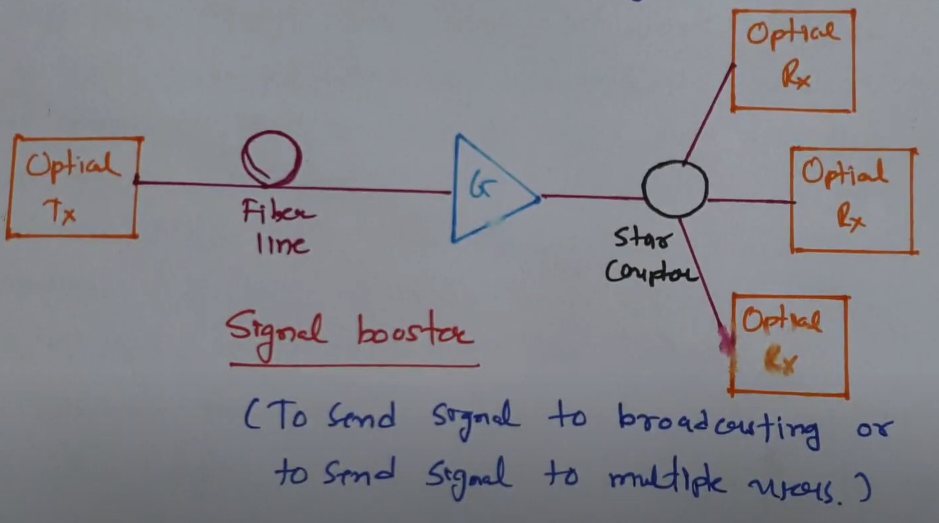 Optical
Rx
Optical
Tx
Fiber
line
G
Star
Couplor
Optical
Rx
Optical
Rx
Signal boostor
(To send signal to broadcasting or
to send signal to multiple users.)